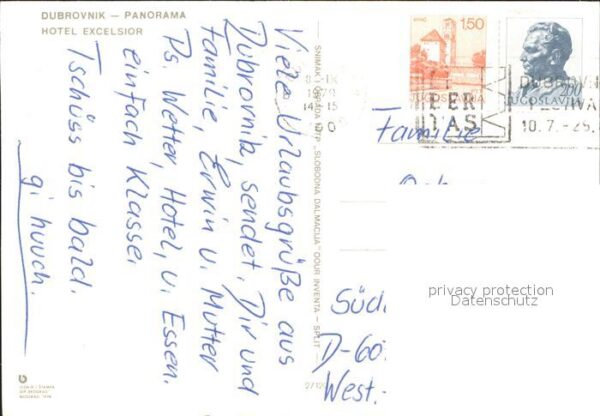 DUBROVNIK – PANORAMA
HOTEL EXCELSIOR
Viele Urlaubsgrüße aus
Dubrovnik, sendet. Dir und
Familie, Erwin u. Mutter
Ps. Wetter, Hotel, u. Essen.
einfach Klasse.
Tschüss bis bald.
SNIMAK I NAKLADA NITP „SLOBODNA DALMACIJA" OOUR INVENTA – SPLIT
1,50
JUGOSLAVIJA
2,00
JUGOSLAVIJA
1979
10.7.-25.
Familie
Süd
D-60
West.-
privacy protection
Datenschutz